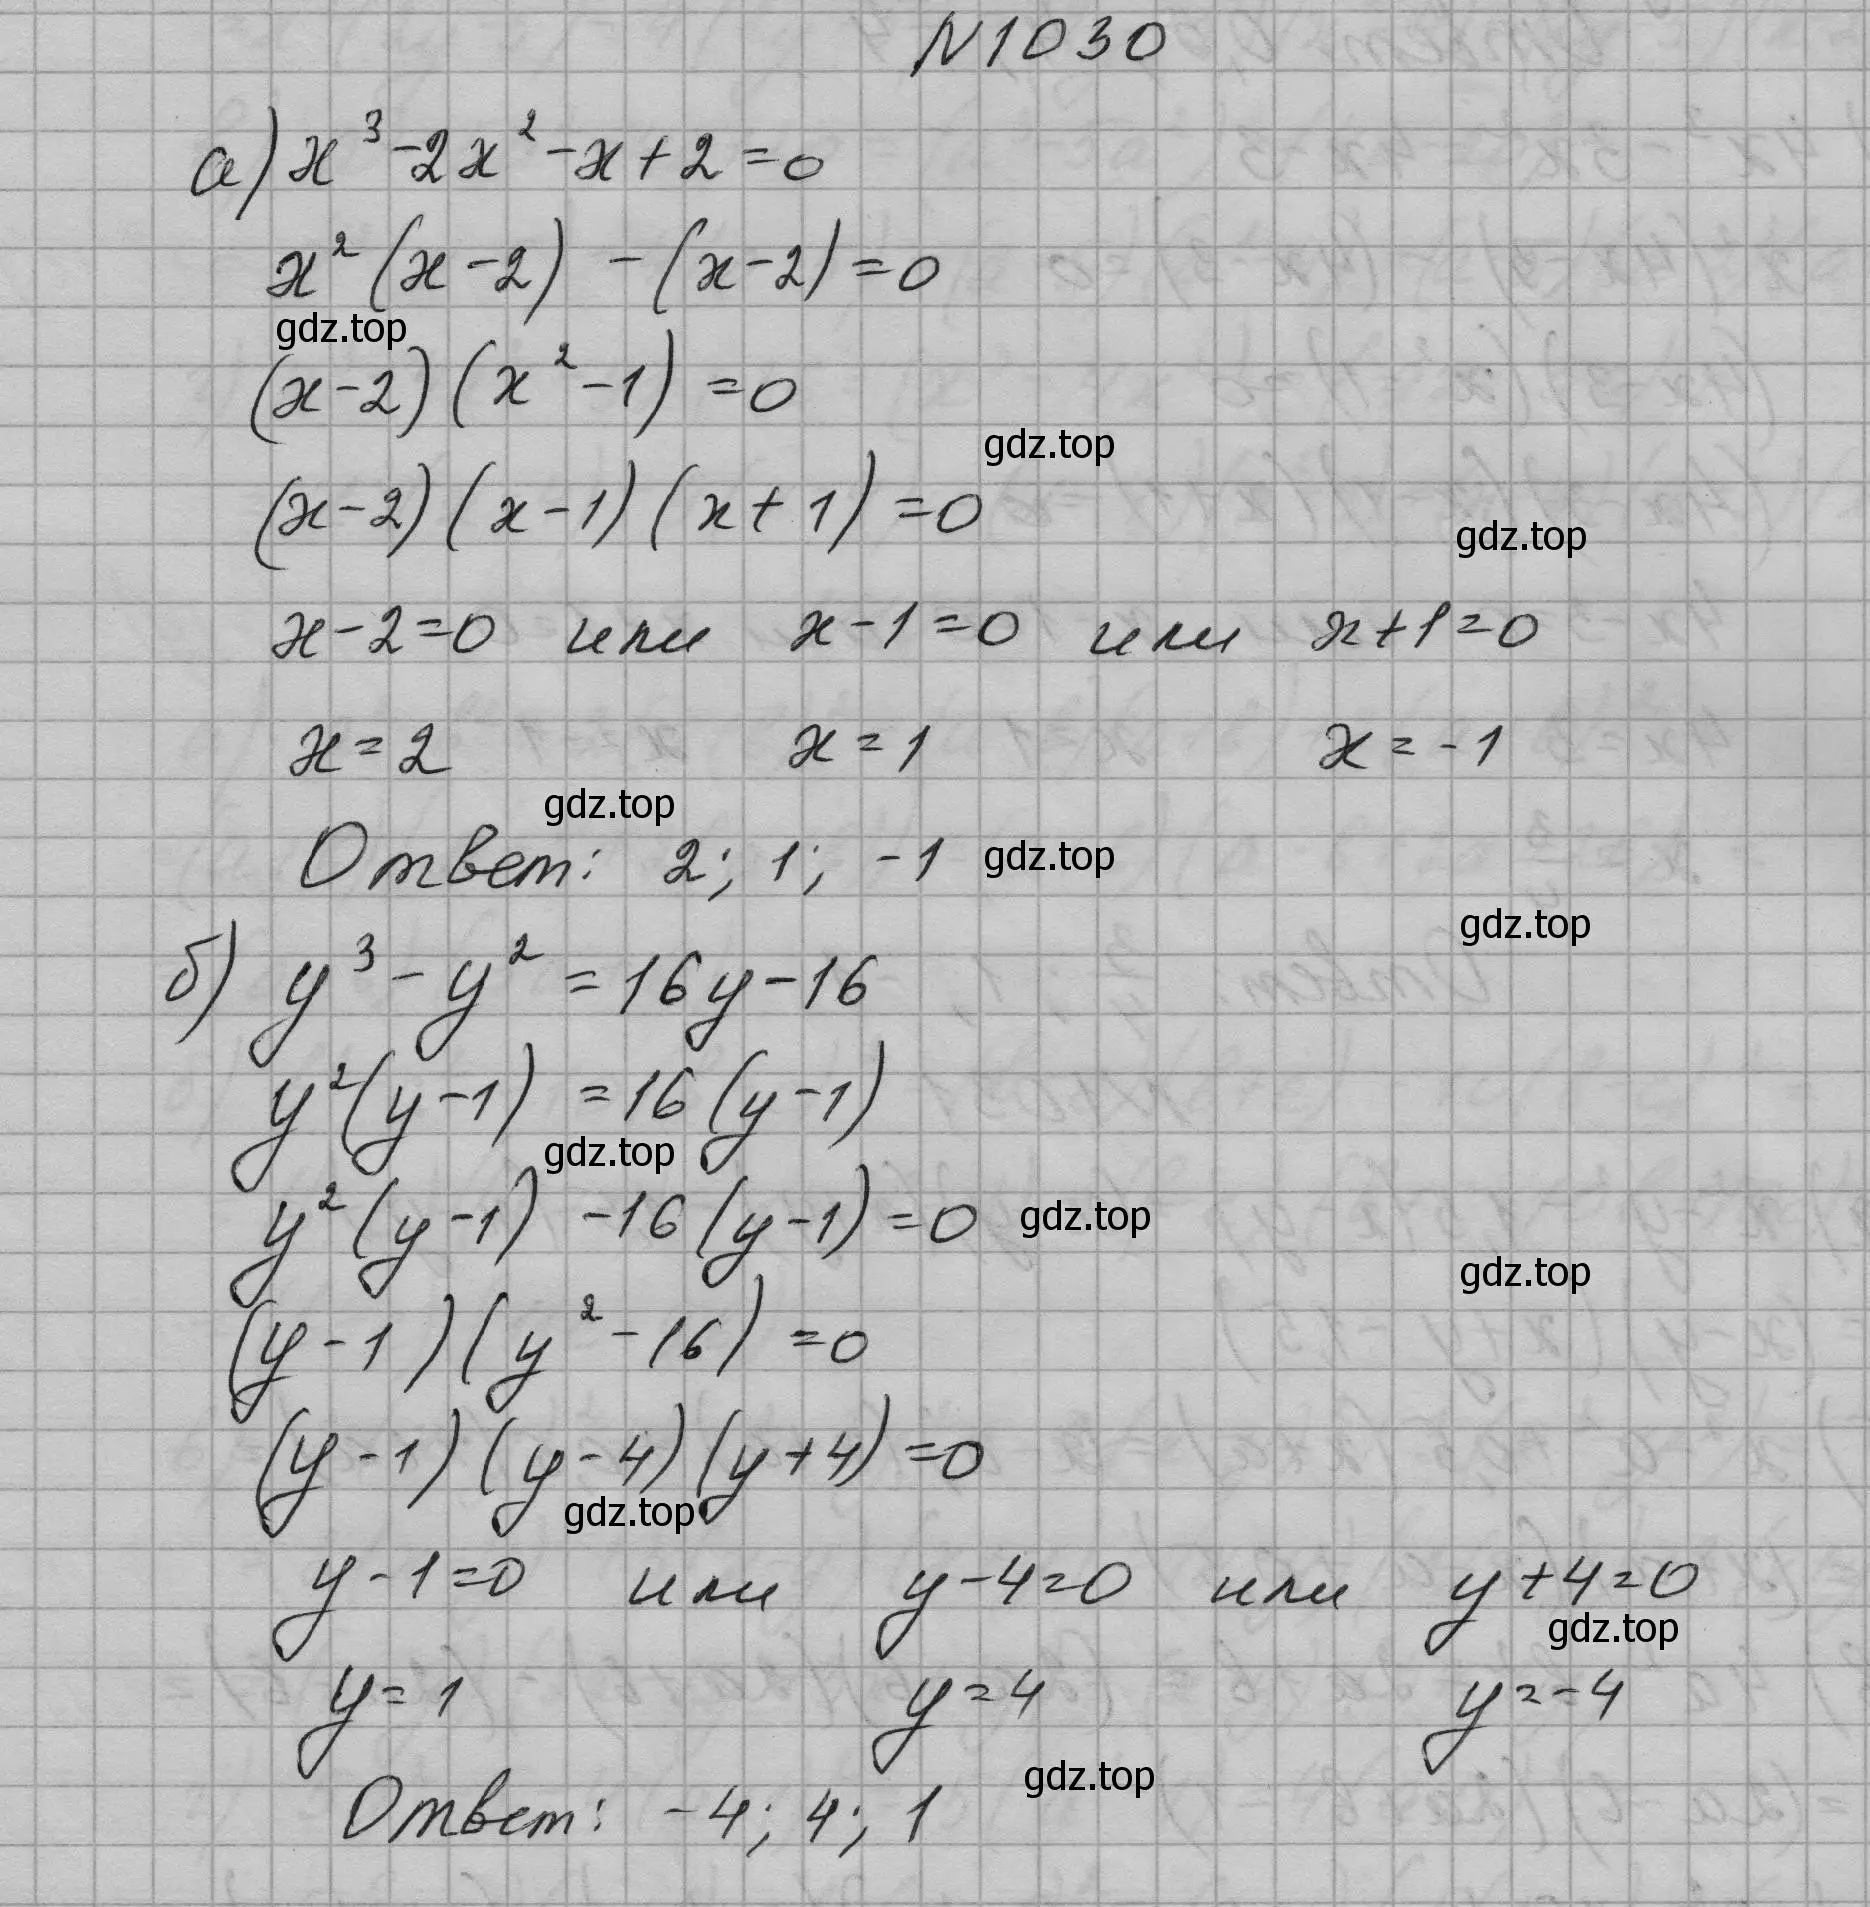 N1030
а) x³ - 2x² - x + 2 = 0
x² (x - 2) - (x - 2) = 0
gdz.top
(x - 2) (x² - 1) = 0
gdz.top
(x - 2) (x - 1) (x + 1) = 0
gdz.top
x - 2 = 0 или x - 1 = 0 или x + 1 = 0
x = 2 x = 1 x = -1
gdz.top
Ответ: 2; 1; -1 gdz.top
gdz.top
б) y³ - y² = 16y - 16
y² (y - 1) = 16 (y - 1)
gdz.top
y² (y - 1) - 16 (y - 1) = 0 gdz.top
gdz.top
(y - 1) (y² - 16) = 0
(y - 1) (y - 4) (y + 4) = 0
gdz.top
y - 1 = 0 или y - 4 = 0 или y + 4 = 0
gdz.top
y = 1 y = 4 y = -4
gdz.top
Ответ: -4; 4; 1